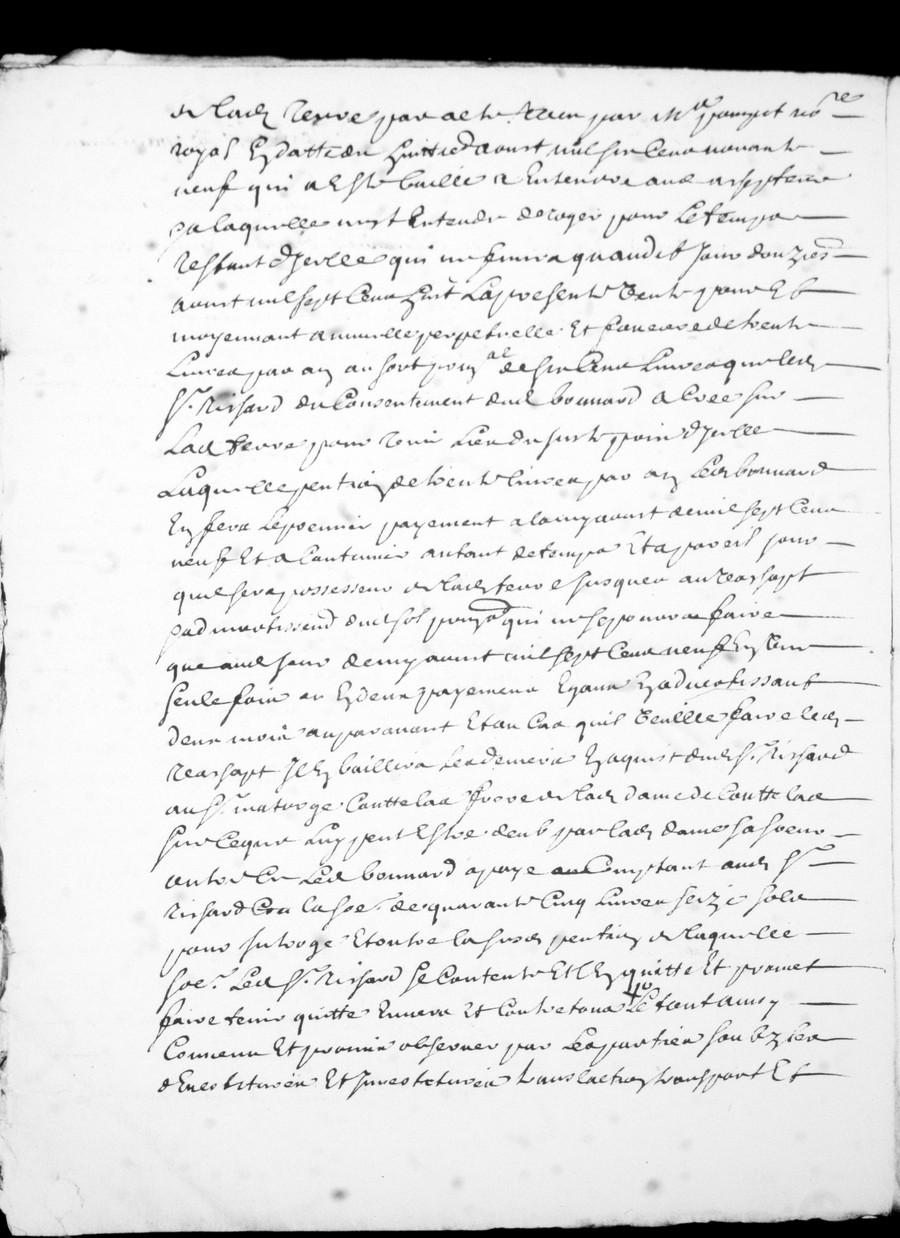 de lad terre par acte recu par Me pompet no.re
royal En datte du huittie daoust mil six Cens nonante
neuf qui a Este baillie a
sa laquelle nest Entendu deroger pour Le temps
Restant dIcelle qui ne finira quaudit Jour douzies
aoust mil sept Cens huit La presente Vente pour Et
moyennant annuelle perpetuelle Et fonciere de trente
Livres par an au sort prin.al de six Cens Livres que led
Sr. Richard du Consentement dud bonnard a Cree sur
Lad terre pour tenir Lieu du juste prix dIcelle
Laquelle pention de trente livres par an Led bonnard
En fera Le premier payement a la my aoust de mil sept Cens
neuf Et a Continuer autant de temps Et a pareil jour
quil sera possesseur de lad terre jusques au reachapt
admortissend dud sol prin.al qui ne se pourra faire
que aud jour de my aoust mil sept Cens neuf En Une
seule fois ou En deux payemens Egaux En advertissant
deux mois auparavant Et au Cas quil Veuille faire led
reachapt Il En baillera Les deniers En aquist dud Sr. Richard
au Sr. Couttelas frere de lad dame de Couttelas
sur Ce que Luy peut Estre deub par lad dame sa soeur
outre Ce Led bonnard a paye au Comptant aud Sr
Richard La soe. de quarante Cinq Livres seize sols
pour Et outre la susd pention de laquelle
soe. Led Sr. Richard se Contente Et lEn quitte Et promet
faire tenir quitte Envers Et Contre tous Le tout ainsy
Convenu Et promis observer par Les parties soubz les
dEvestitures Et Investitures translation transport Et